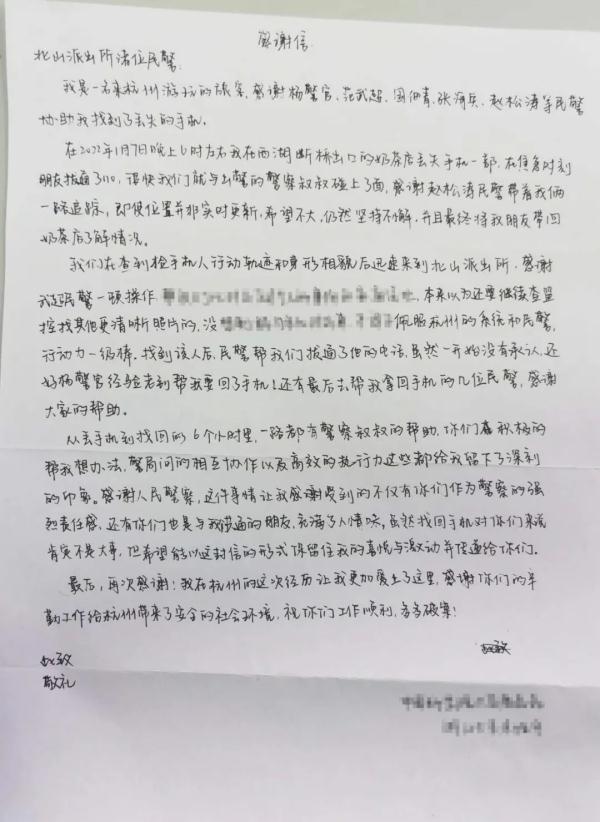 感谢信
北山派出所诸位民警:
我是一名来杭州游玩的旅客,感谢杨警官、范武超、周佃青、张海兵、赵松涛等民警
协助我找到了丢失的手机。
在2022年1月7日晚上6时左右我在西湖断桥出口的奶茶店丢失手机一部,在焦急时刻
朋友拨通了110,很快我们就与出警的警察叔叔碰上了面,感谢赵松涛民警带着我俩
一路追踪,即使位置并非实时更新,希望不大,仍然坚持不懈,并且最终将我朋友带回
奶茶店了解情况。
我们在查到捡手机人行动轨迹和身形相貌后迅速来到北山派出所,感谢
武超民警一顿操作,本来以为还要继续查监
控找其他更清晰照片的,没佩服杭州的系统和民警,
行动力一级棒。找到该人后,民警帮我们拨通了他的电话,虽然一开始没有承认,还
好杨警官经验老到帮我要回了手机!还有最后去帮我拿回手机的几位民警,感谢
大家的帮助。
从丢手机到找回的6个小时里,一路都有警察叔叔的帮助,你们都积极的
帮我想办法,警局间的相互协作以及高效的执行力这些都给我留下了深刻
的印象。感谢人民警察,这件事情让我感受到的不仅有你们作为警察的强
烈责任感,还有你们也是与我普通的朋友,充满了人情味,虽然找回手机对你们来说
肯定不是大事,但希望能以这封信的形式保留住我的喜悦与激动并传递给你们。
最后,再次感谢!我在杭州的这次经历让我更加爱上了这里,感谢你们的辛
勤工作给杭州带来了安全的社会环境,祝你们工作顺利,多多破案!
此致
敬礼